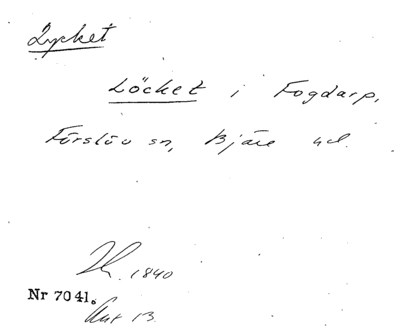 Lycket
Löcket i Fogdarp,
Förslöv sn, Bjäre hd.
1840
Nr 7041.
13.